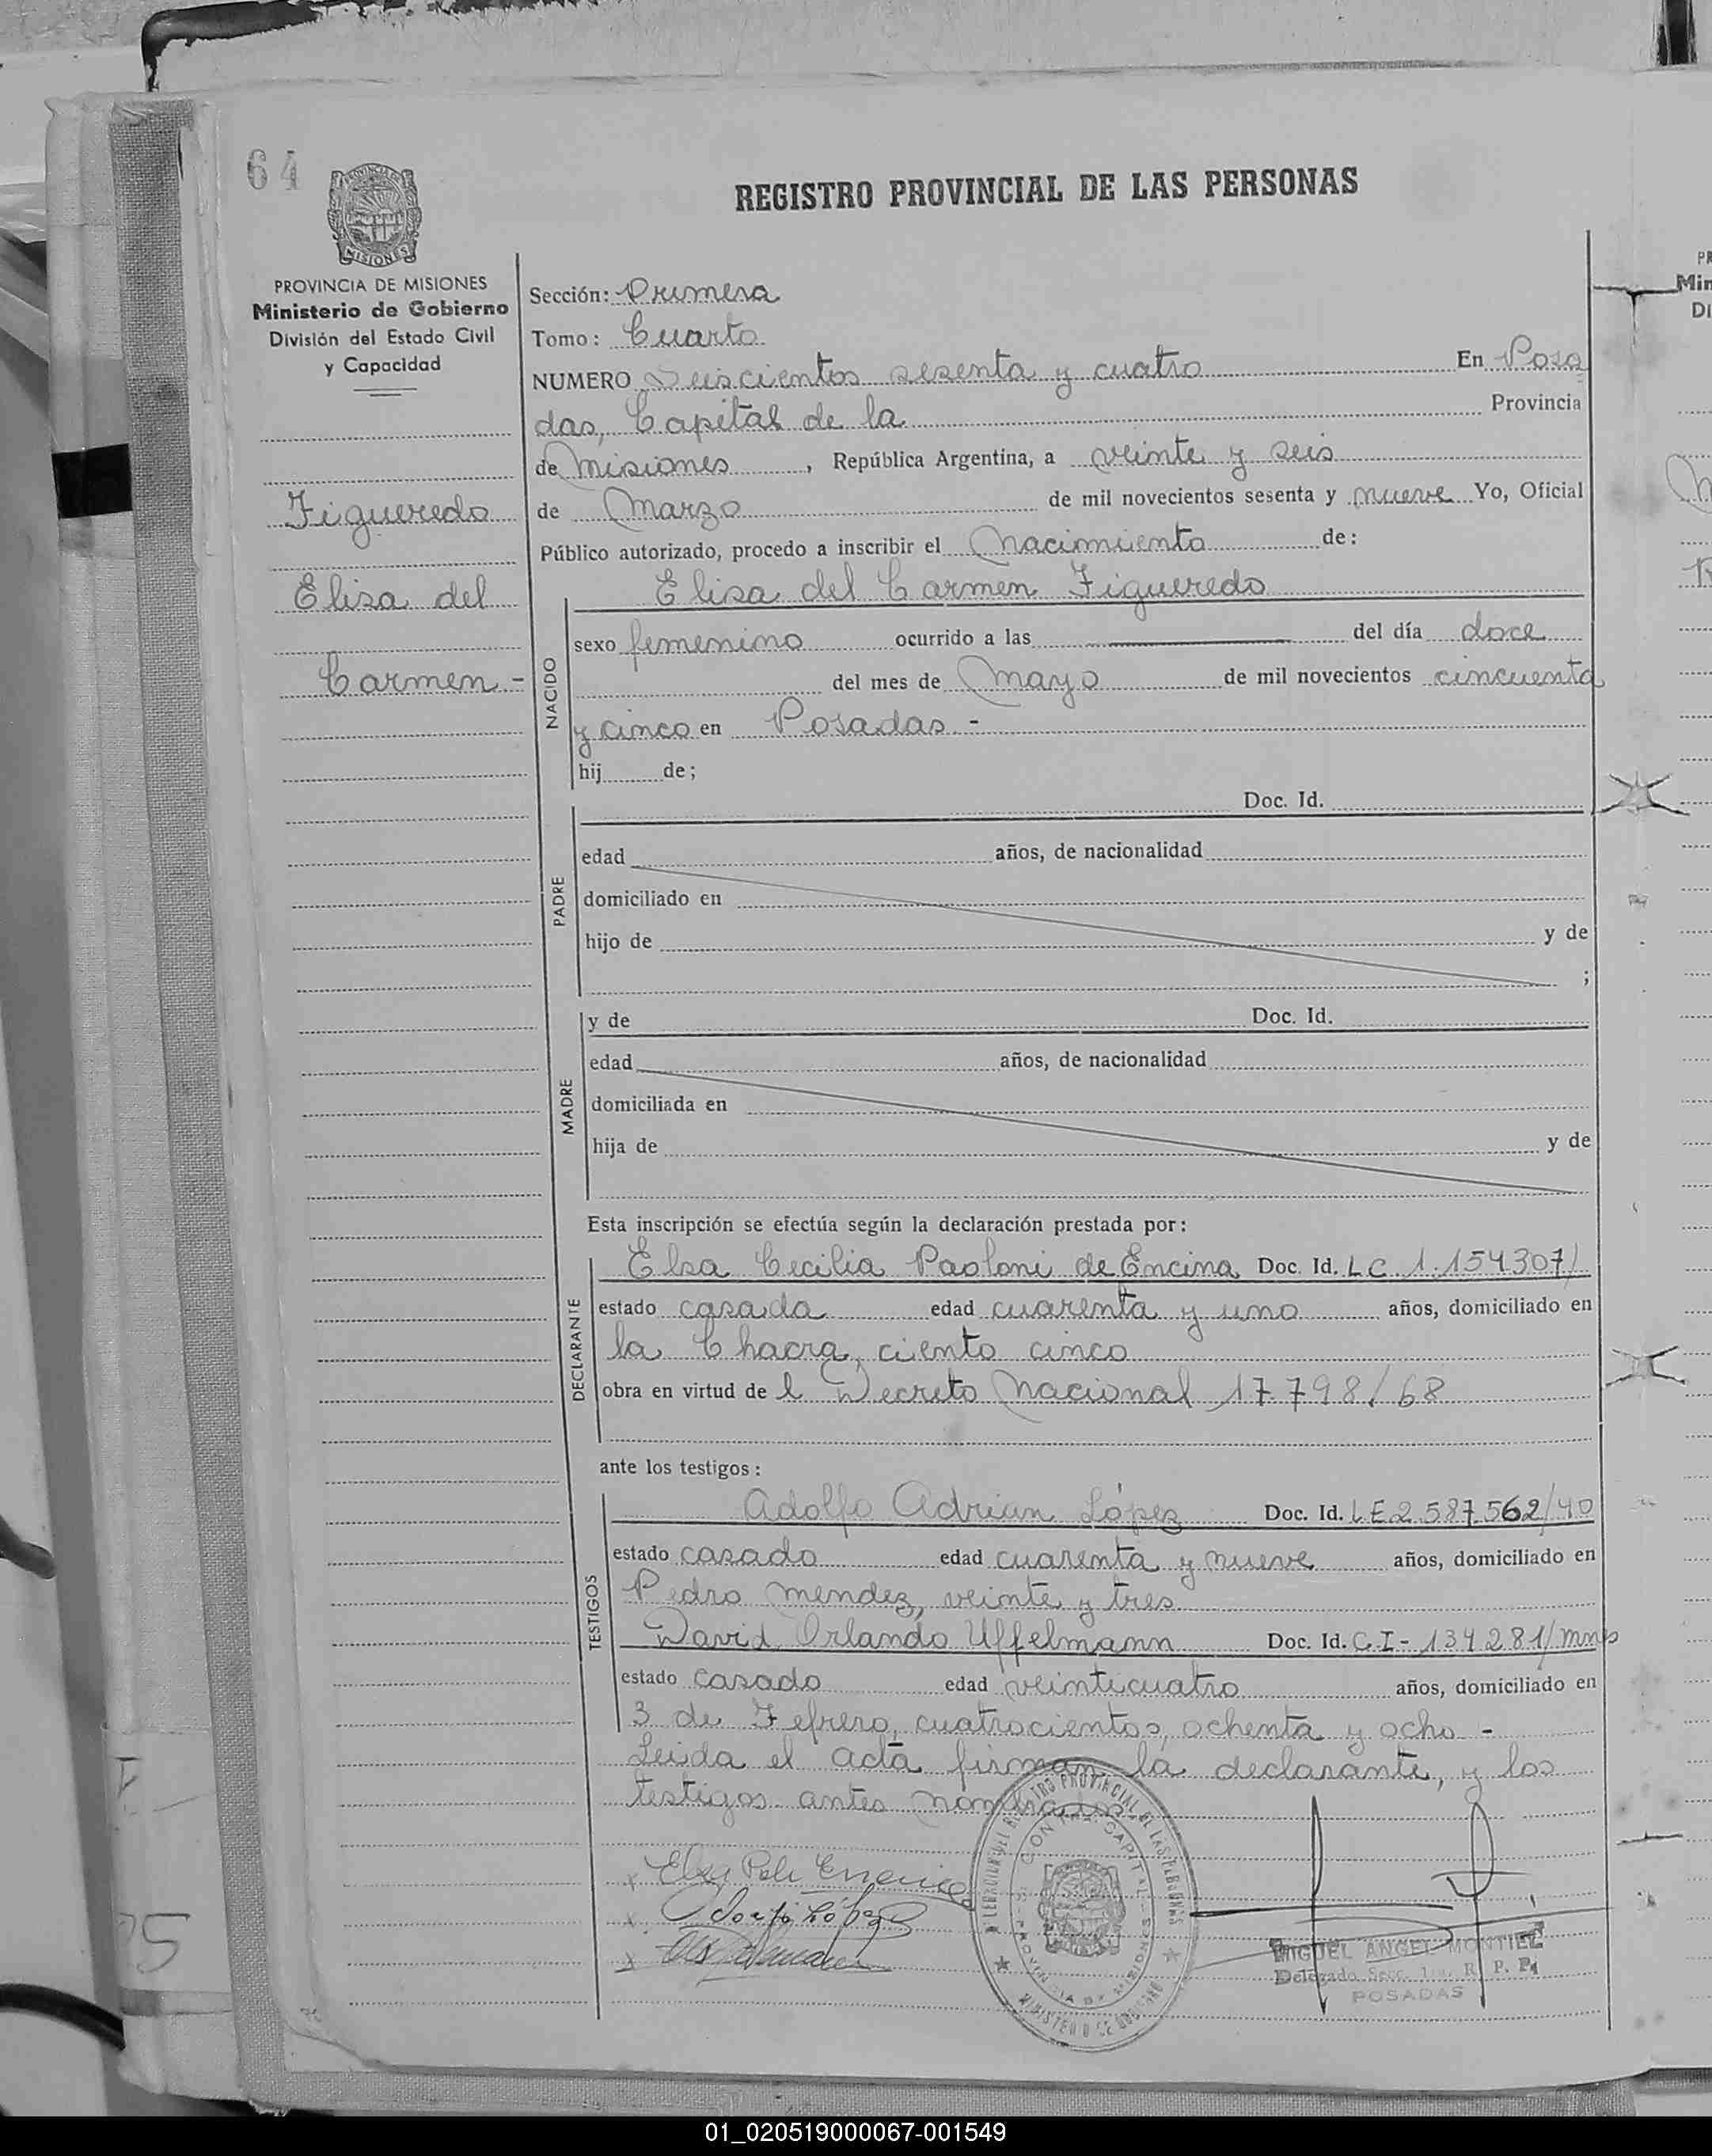 64
REGISTRO PROVINCIAL DE LAS PERSONAS
MISIONES
PROVINCIA DE MISIONES
Ministerio de Gobierno
División del Estado Civil
y Capacidad
Figueredo
Elisa del
Carmen -
Sección: Primera
Tomo: Cuarto
NUMERO Seiscientos sesenta y cuatro En Posa
das, Capital de la Provincia
de Misiones, República Argentina, a veinte y seis
de Marzo de mil novecientos sesenta y nueve Yo, Oficial
Público autorizado, procedo a inscribir el Nacimiento de:
NACIDO
Elisa del Carmen Figueredo
sexo femenino ocurrido a las del día doce
del mes de Mayo de mil novecientos cincuenta
y cinco en Posadas. -
hij de;
PADRE
Doc. Id.
edad años, de nacionalidad
domiciliado en
hijo de y de
;
MADRE
y de Doc. Id.
edad años, de nacionalidad
domiciliada en
hija de y de
Esta inscripción se efectúa según la declaración prestada por:
DECLARANTE
Elsa Cecilia Paoloni de Encina Doc. Id. LC 1.154307/
estado casada edad cuarenta y uno años, domiciliado en
la Chacra, ciento cinco
obra en virtud de l Decreto Nacional 17.798/68
ante los testigos:
TESTIGOS
Adolfo Adrian López Doc. Id. LE 2.587.562/40
estado casado edad cuarenta y nueve años, domiciliado en
Pedro Mendez, veinte y tres
David Orlando Uffelmann Doc. Id. C.I - 134.281/mns
estado casado edad veinticuatro años, domiciliado en
3 de Fefrero, cuatrocientos, ochenta y ocho -
Leida el acta firman la declarante, y los
testigos antes nombrados
MIGUEL ANGEL MONTIEL
Delegado Secc. 1ra. R. P. P.
POSADAS
25
01_020519000067-001549